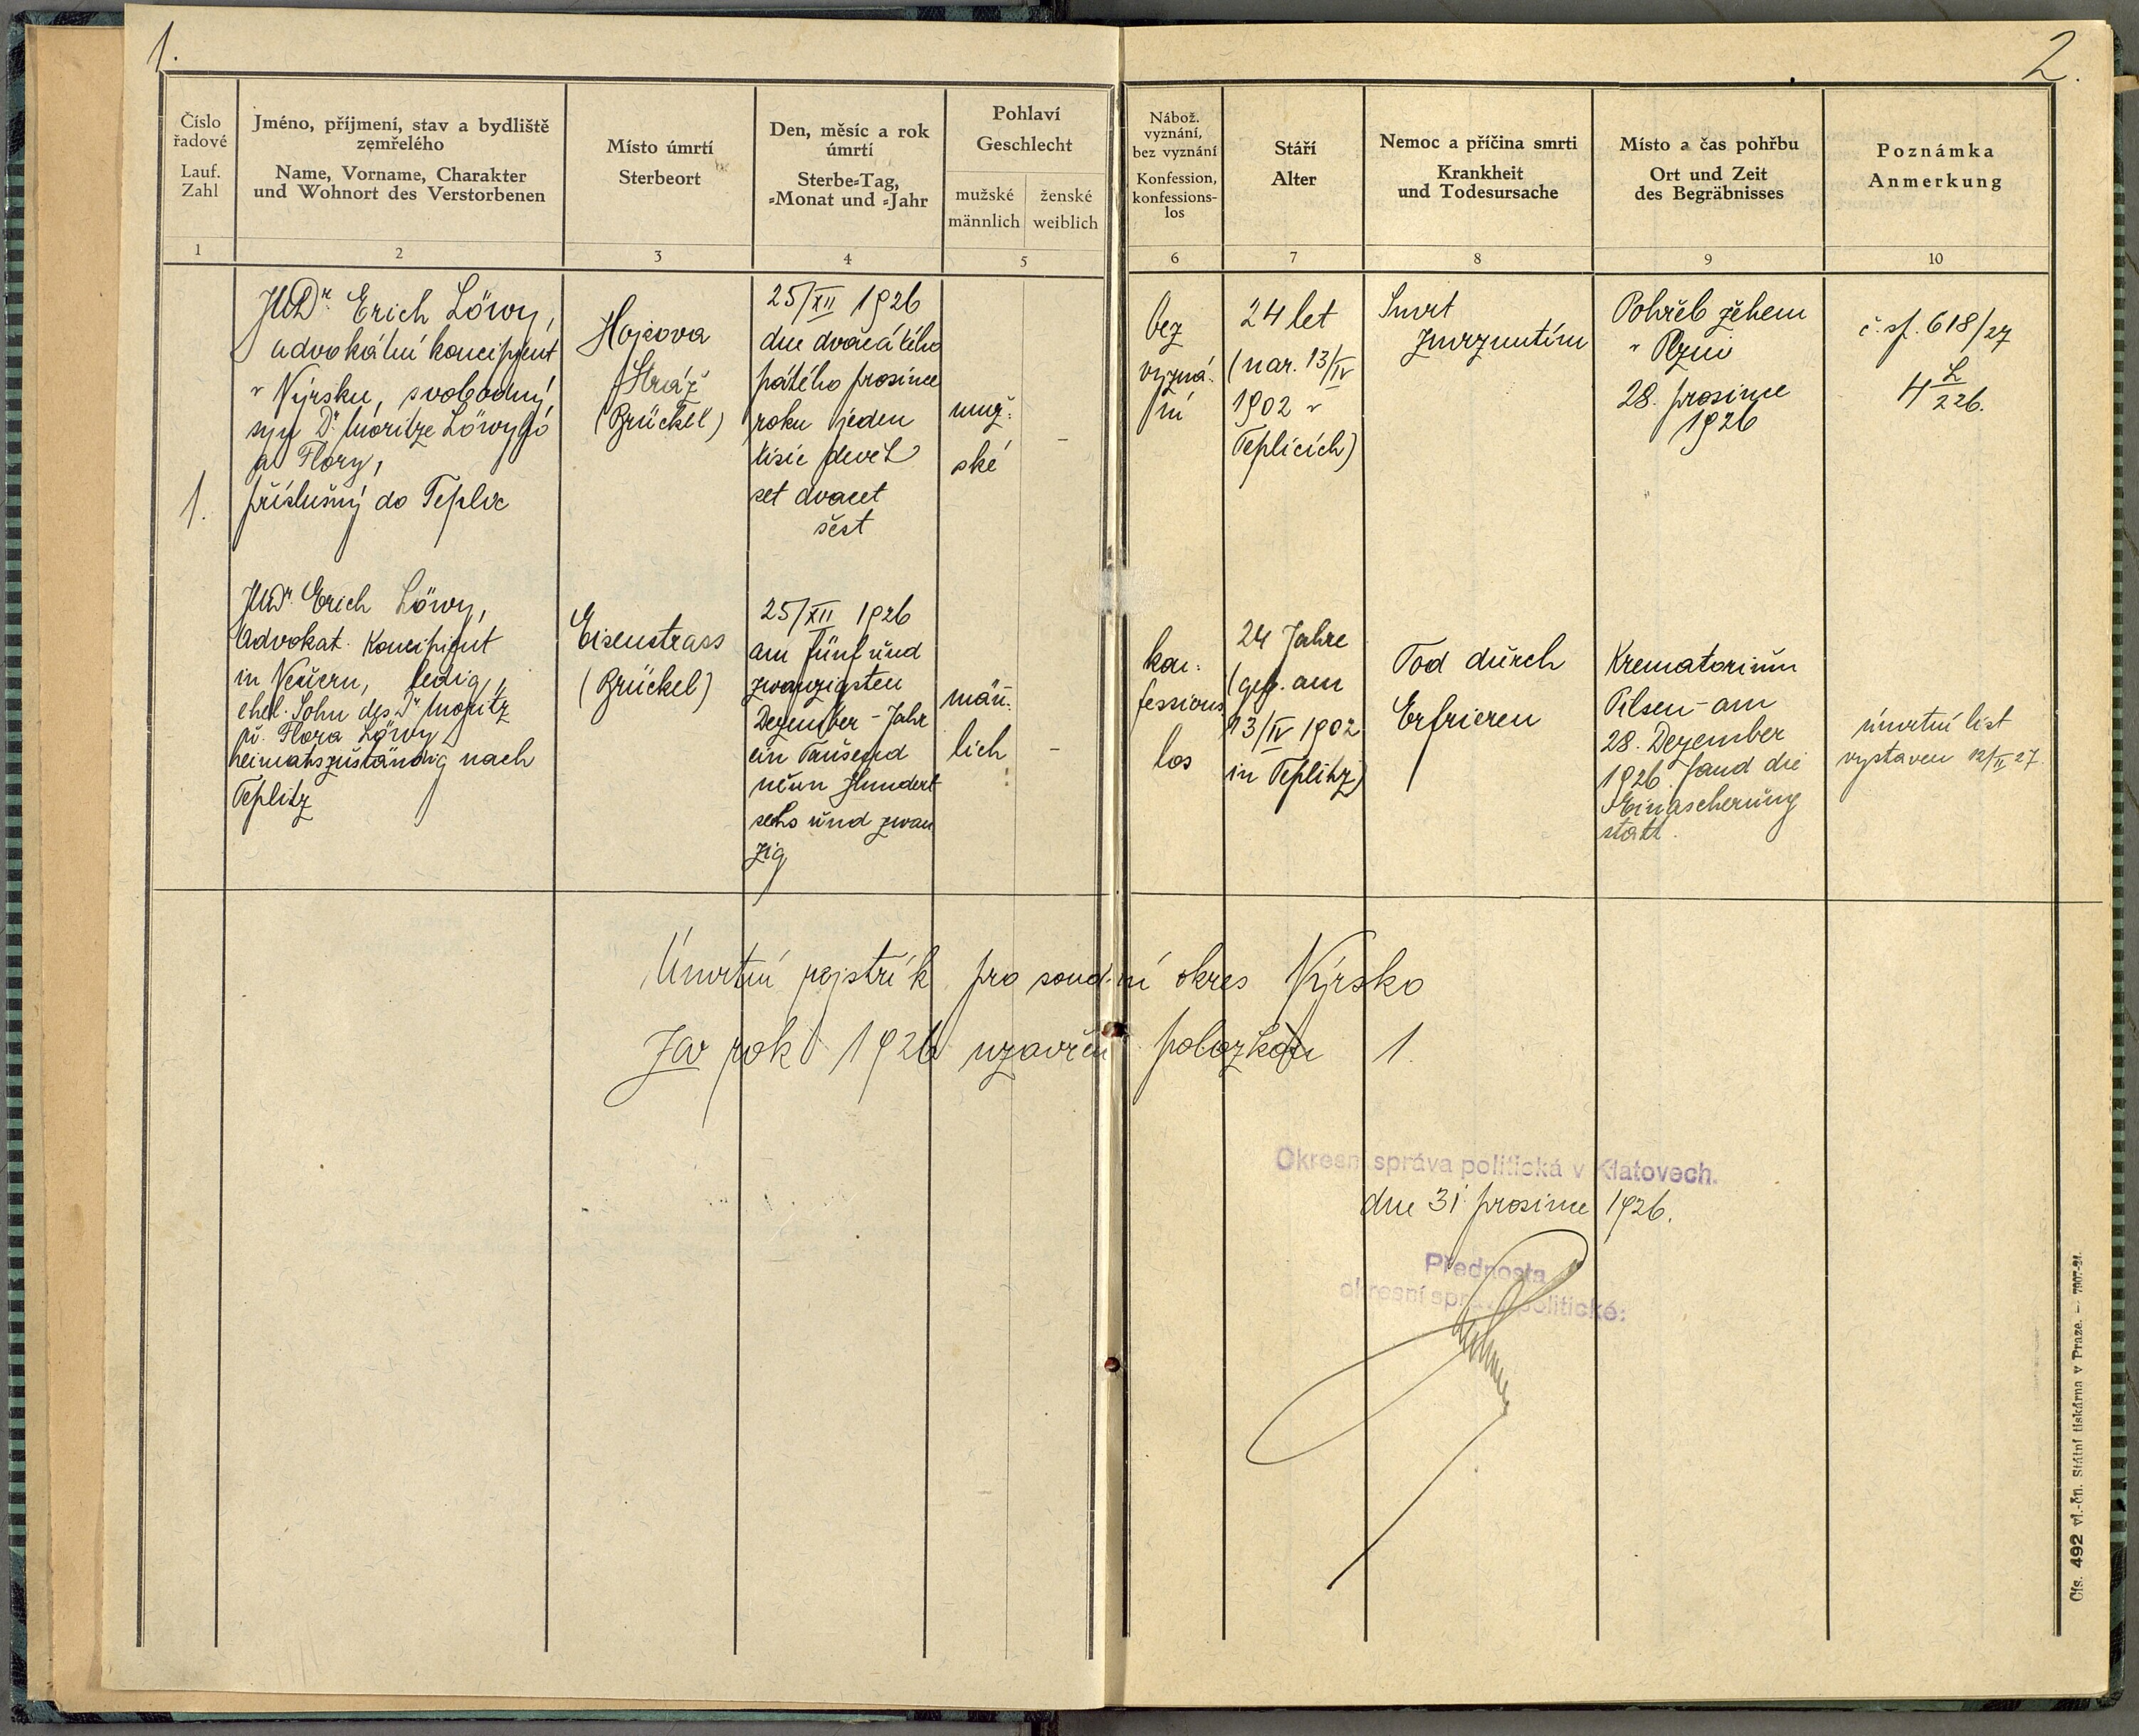 1.
2.
Číslo
řadové
Lauf.
Zahl
1
Jméno, příjmení, stav a bydliště
zemřelého
Name, Vorname, Charakter
und Wohnort des Verstorbenen
2
Místo úmrtí
Sterbeort
3
Den, měsíc a rok
úmrtí
Sterbe-Tag,
-Monat und -Jahr
4
Pohlaví
Geschlecht
mužské
männlich
ženské
weiblich
5
Nábož.
vyznání,
bez vyznání
Konfession,
konfessions-
los
6
Stáří
Alter
7
Nemoc a příčina smrti
Krankheit
und Todesursache
8
Místo a čas pohřbu
Ort und Zeit
des Begräbnisses
9
Poznámka
Anmerkung
10
1.
JUDr. Erich Löwy,
advokátní koncipient
v Nýrsku, svobodný
syn Dr. Moritze Löwyho
a Flory,
příslušný do Teplic
Hojsova
Stráž
(Brückel)
25/XII 1926
dne dvacátého
pátého prosince
roku jeden
tisíc devět
set dvacet
šest
muž-
ské
–
bez
vyzná-
ní
24 let
(nar. 13/IV
1902 v
Teplicích)
Smrt
zmrznutím
Pohřeb žehem
v Plzni
28. prosince
1926
č. sp. 618/27
4 L/226.
JUDr. Erich Löwy,
Advokat. Koncipient
in Neuern, ledig,
ehel. Sohn des Dr Moritz
u. Flora Löwy
heimatszuständig nach
Teplitz
Eisenstrass
(Brückel)
25/XII 1926
am fünf und
zwanzigsten
Dezember - Jahr
ein Tausend
neun Hundert
sechs und zwan
zig
männ-
lich
–
kon-
fessions
los
24 Jahre
(geb. am
13/IV 1902
in Teplitz)
Tod durch
Erfrieren
Krematorium
Pilsen - am
28. Dezember
1926 fand die
Einäscherung
statt.
úmrtní list
vystaven 12/II 27.
Úmrtní rejstřík pro soudní okres Nýrsko
za rok 1926 uzavřen položkou 1.
Okresní správa politická v Klatovech.
dne 31 prosince 1926.
Přednosta
okresní správy politické:
Čís. 492 vl.-čn. Státní tiskárna v Praze. — 7907-21.